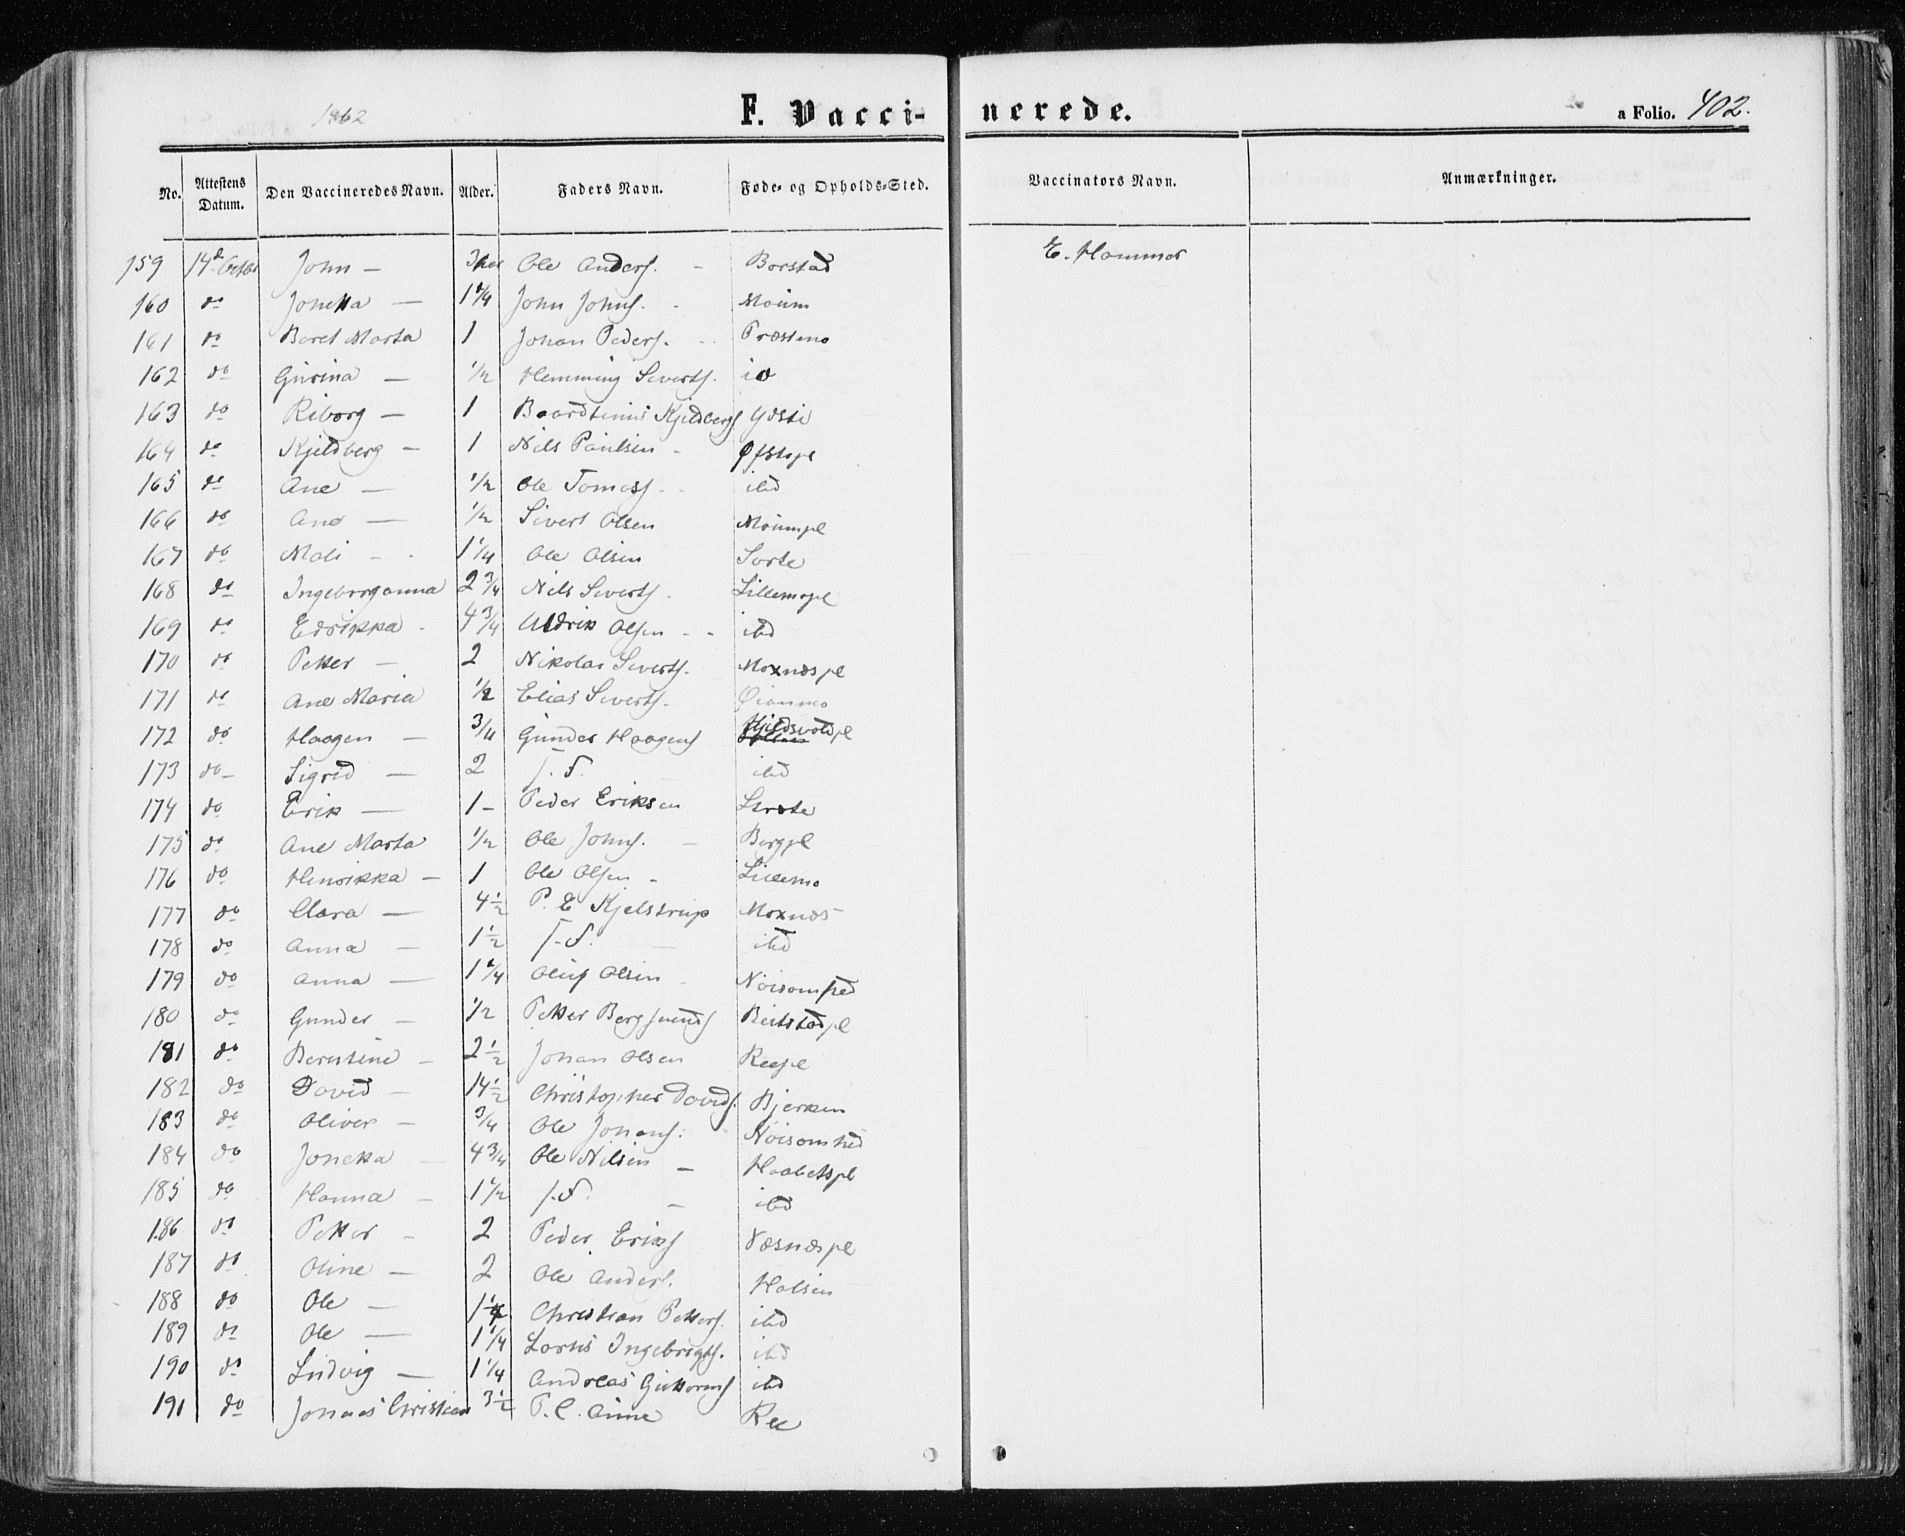 1862
F. Vacci-nerede.
a Folio. 402.
No. Attestens Datum. Den Vaccineredes Navn. Alder. Faders Navn. Føde- og Opholds-Sted. Vaccinators Navn. Anmærkninger.
159 14d Octbr John — Ole Anders. - Borstad E. Hammer
160 do Jonetta — 1 1/4 John Johns. - Moum
161 do Beret Marta 1 Johan Peders. - Præstmo
162 do Gurina — 1/2 Hemming Siverts. io
163 do Riborg — 1 Baardtinus Kjeldbergs
164 do Kjeldberg — 1 Nils Paulsen - Øfstepl
165 do Ane — 1/2 Ole Tomass - ibd
166 do Ane — 1/2 Sivert Olsen Moumpl
167 do Mali - - 1 1/4 Ole Olsen Sorte
168 do Ingeborganna 2 3/4 Nils Siverts. Lillemopl
169 do Edrikka - 4 3/4 Aldrik Olsen - - ibd
170 do Petter — 2 Nikolai Siverts. Moxnæspl
171 do Ane Maria 1/2 Elias Siverts. Øianmo
172 do Haagen — 3/4 Gunder Haagens Kjeldsvoldpl
173 do - Sigrid — 2 s. F. ibd
174 do Erik — 1 - Peder Eriksen
175 do Ane Marta 1/2 Ole Johns. - Bergpl
176 do Henrikka — 1 Ole Olsen - Lillemo
177 do Clara — 4 1/2 P. E Kjelstrup Moxnæs
178 do Anna — 1 1/2 s. F. — ibd
179 do Anna — 1 1/4 Oluf Olsen - Nøisomhed
180 do Gunder — 1/2 Petter Bergsvends Beitstadpl
181 do Berestine — 2 1/2 Johan Olsen Reepl
182 do David — 14 1/2 Christopher Davids. Bjerken
183 do Oliver — 3/4 Ole Johans: Nøisomhed
184 do Joneta — 4 3/4 Ole Nilsen — Haabetspl
185 do Hanna — 1 1/2 s. F. — ibd
186 do Petter - 2 Peder Eriks Næsnæspl
187 do Oline — 2 Ole Anders. Halsen
188 do Ole — Christian Petters. ibd
189 do Ole — 1 1/4 Lorns Ingebrigts. ibd
190 do Ludvig — 1 1/4 Andreas Guttorms ibd
191 do Jonas Cristian 3 1/2 P. C. Aune Ree